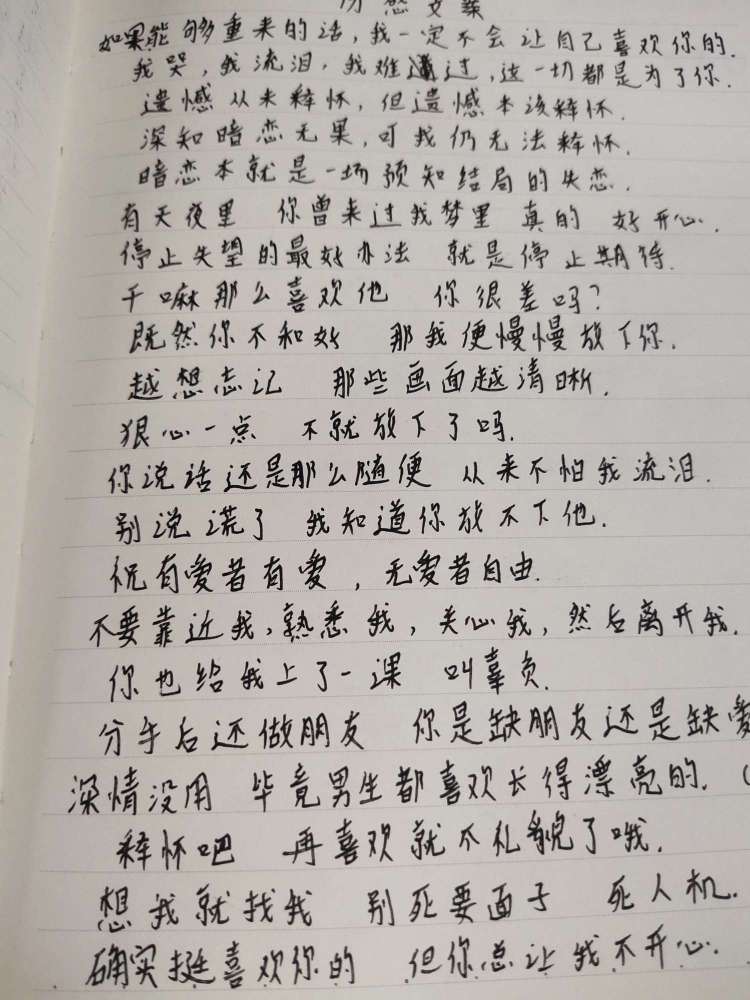 伤感文案
如果能够重来的话,我一定不会让自己喜欢你的.
我哭,我流泪,我难过,这一切都是为了你.
遗憾从未释怀,但遗憾本该释怀.
深知暗恋无果,可我仍无法释怀.
暗恋本就是一场预知结局的失恋.
有天夜里 你曾来过我梦里 真的 好开心.
停止失望的最好办法 就是停止期待.
干嘛那么喜欢他 你很差吗?
既然你不和好 那我便慢慢放下你.
越想忘记 那些画面越清晰.
狠心一点 不就放下了吗.
你说话还是那么随便 从来不怕我流泪.
别说谎了 我知道你放不下他.
祝有愛者有愛,无愛者自由.
不要靠近我,熟悉我,关心我,然后离开我.
你也给我上了一课 叫辜负.
分手后还做朋友 你是缺朋友还是缺愛
深情没用 毕竟男生都喜欢长得漂亮的. (
释怀吧 再喜欢就不礼貌了哦.
想我就找我 别死要面子 死人机.
确实挺喜欢你的 但你总让我不开心.